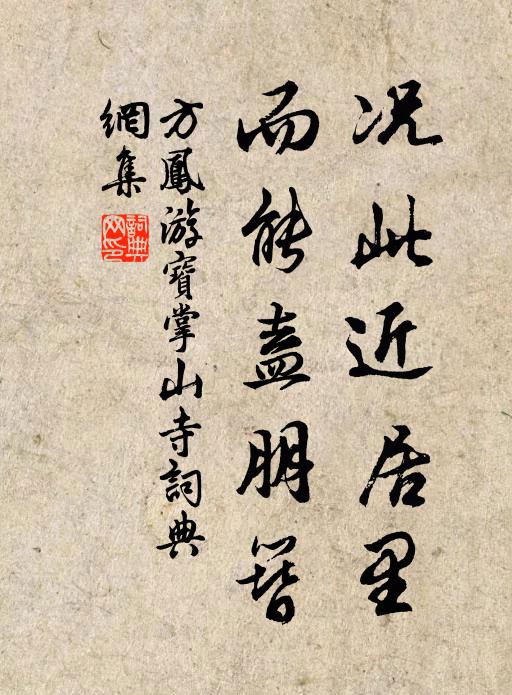 况此近居里
而能盍朋簪
方鳳游寶掌山寺詞典
網集
詞典
网印